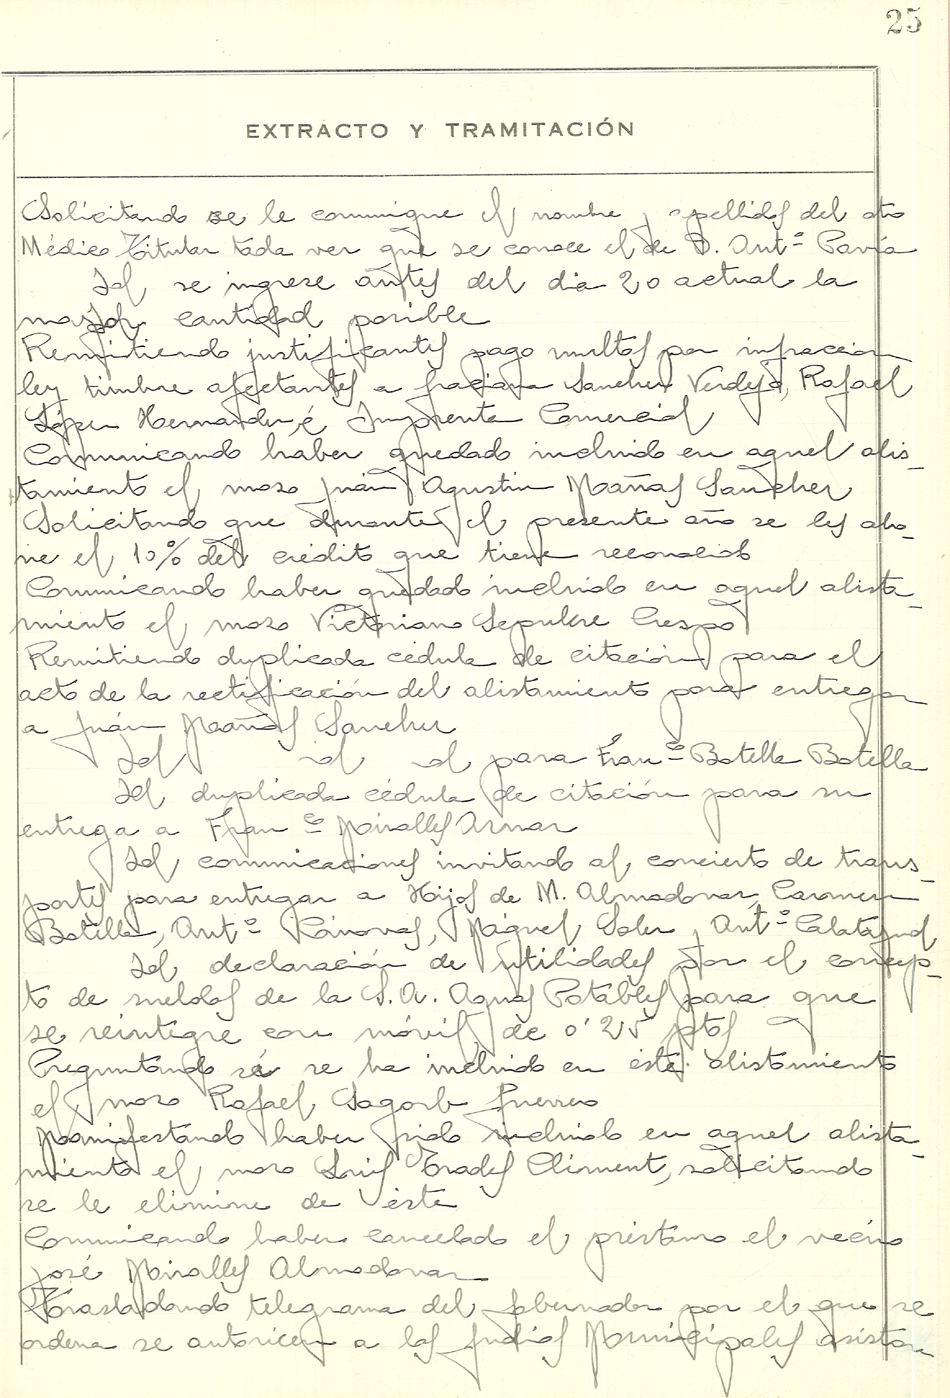 25
EXTRACTO Y TRAMITACIÓN
Solicitando se le comunique el nombre y apellidos del otro
Médico Titular toda vez que se conoce el de D. Antº Pavía
Id se ingrese antes del dia 20 actual la
mayor cantidad posible
Remitiendo justificantes pago multas por infracción
ley timbre afectantes a Graciana Sanchez Verdejo, Rafael
López Hernandez é Imprenta Comercial
Comunicando haber quedado incluido en aquel alis-
tamiento el mozo Juán Agustin Mañas Sanchez
Solicitando que durante el presente año se les abo-
ne el 10% del crédito que tiene reconocido
Comunicando haber quedado incluido en aquel alista-
miento el mozo Victoriano Sepulcre Crespo
Remitiendo duplicada cédula de citación para el
acto de la rectificación del alistamiento para entregar
a Juán Mañas Sanchez
Id id id para Franco Botella Botella
Id duplicada cédula de citación para su
entrega a Franco Miralles Aznar
Id comunicaciones invitando al concierto de trans-
portes para entregar a Hijos de M. Almodovar, Carmen
Botella, Antº Cánovas, Miguel Soler y Antº Calatayud
Id declaración de utilidades por el concep-
to de sueldos de la S.A. Aguas Potables para que
se reintegre con móvil de 0'25 ptas
Preguntando si se ha incluido en este alistamiento
el mozo Rafael Sagorb Guerrero
Manifestando haber sido incluido en aquel alista-
miento el mozo Luis Prades Climent, solicitando
se le elimine de éste
Comunicando haber cancelado el préstamo el vecino
José Miralles Almodovar
Trasladando telegrama del Gobernador por el que se
ordena se autoricen a los Judios Municipales asistan